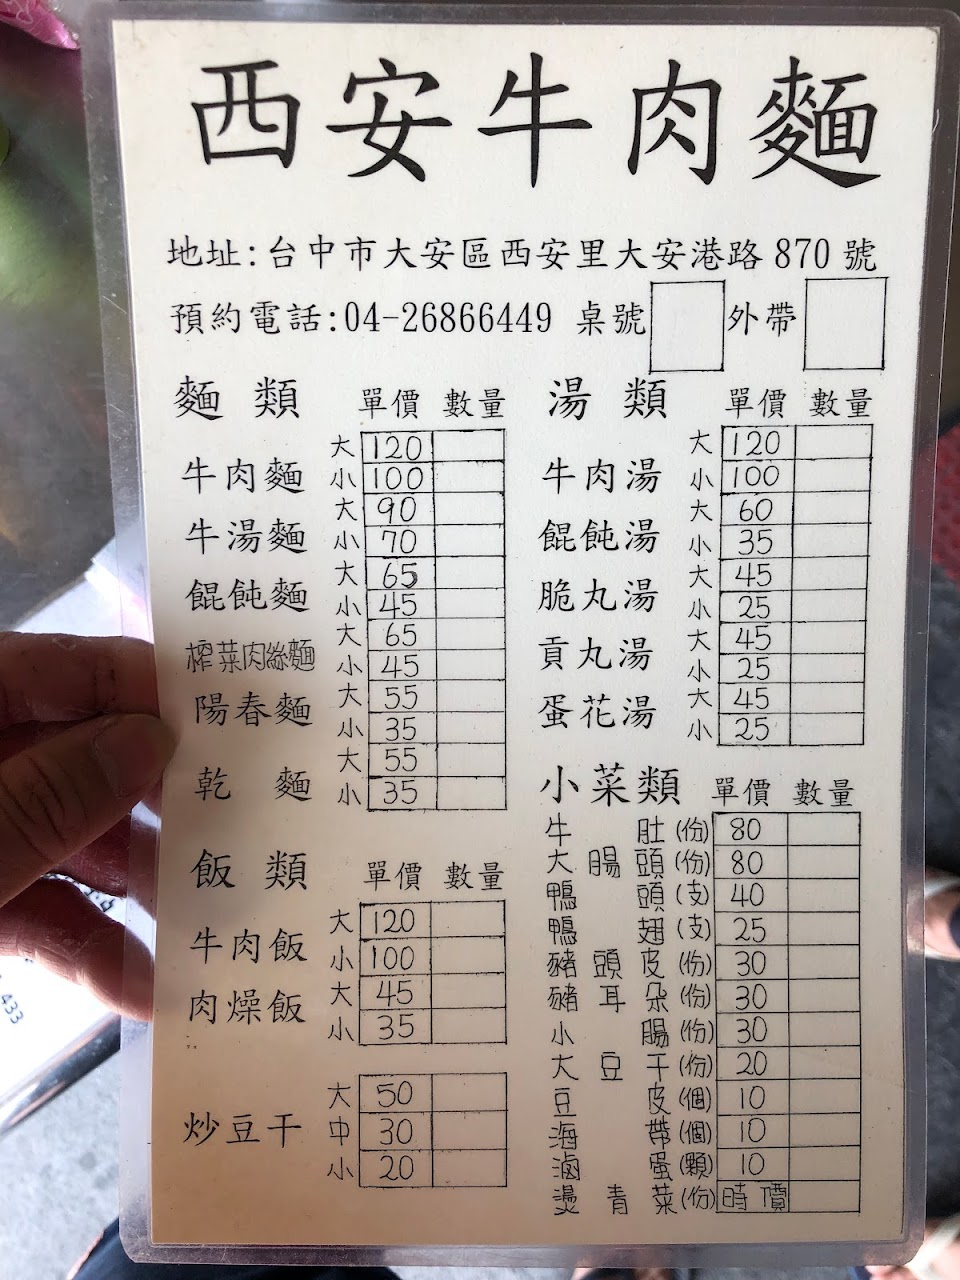 西安牛肉麵
地址:台中市大安區西安里大安港路870號
預約電話:04-26866449 桌號 外帶
麵類 單價 數量
牛肉麵 大 120
小 100
牛湯麵 大 90
小 70
餛飩麵 大 65
小 45
榨菜肉絲麵 大 65
小 45
陽春麵 大 55
小 35
乾麵 大 55
小 35
飯類 單價 數量
牛肉飯 大 120
小 100
肉燥飯 大 45
小 35
炒豆干 大 50
中 30
小 20
湯類 單價 數量
牛肉湯 大 120
小 100
餛飩湯 大 60
小 35
脆丸湯 大 45
小 25
貢丸湯 大 45
小 25
蛋花湯 大 45
小 25
小菜類 單價 數量
牛肚(份) 80
大腸頭(份) 80
鴨頭(支) 40
鴨翅(支) 25
豬頭皮(份) 30
豬耳朵(份) 30
小腸(份) 30
大豆干(份) 20
豆皮(個) 10
海帶(個) 10
滷蛋(顆) 10
燙青菜(份) 時價
433